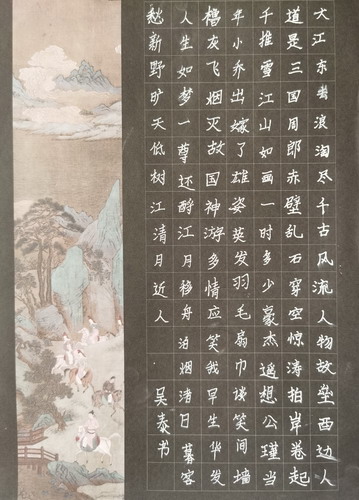 大江东去浪淘尽千古风流人物故垒西边人
道是三国周郎赤壁乱石穿空惊涛拍岸卷起
千推雪江山如画一时多少豪杰遥想公瑾当
年小乔出嫁了雄姿英发羽毛扇巾谈笑间墙
橹灰飞烟灭故国神游多情应笑我早生华发
人生如梦一尊还酹江月移舟泊烟渚日暮客
愁新野旷天低树江清月近人 吴泰书